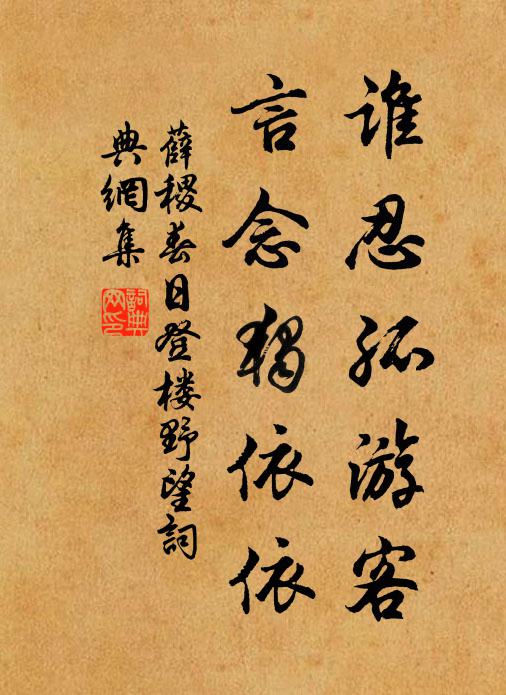 谁忍孤游客
言念独依依
薛稷春日登楼野望詞
典網集
詞典网印